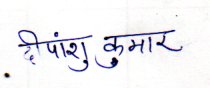 दीपांशु कुमार